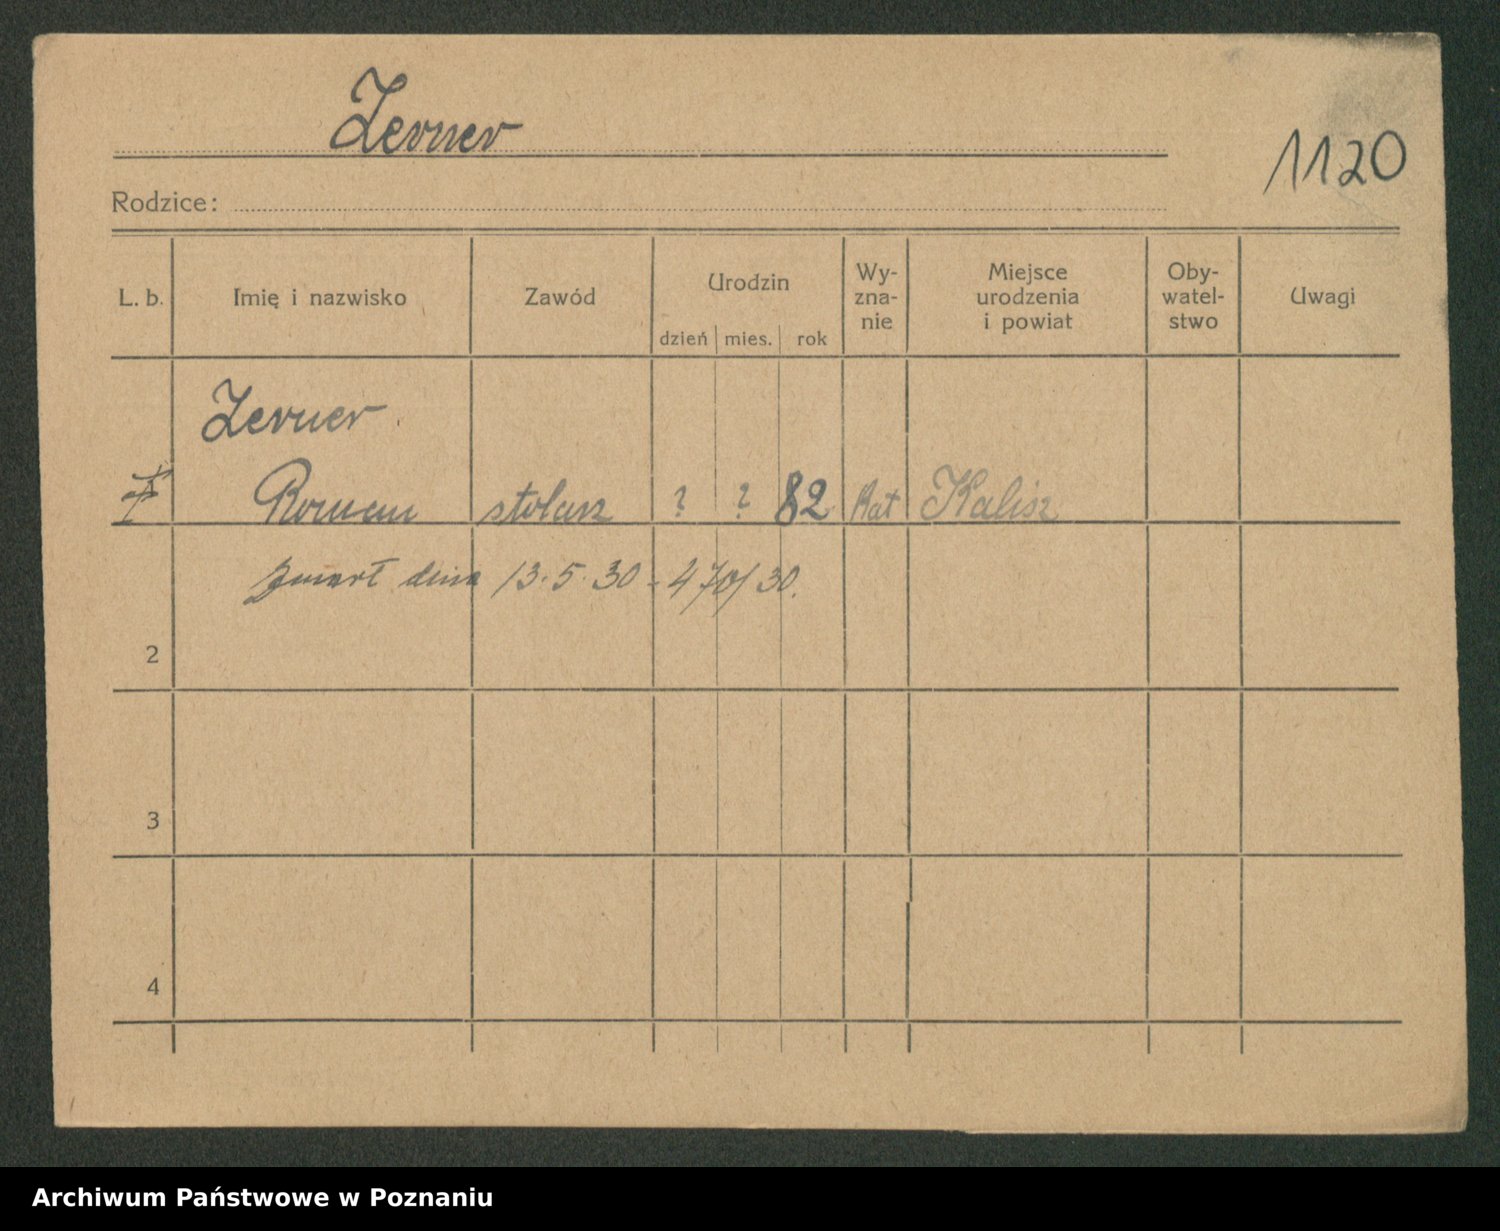 Zerner
1120
Rodzice:
L. b. Imię i nazwisko Zawód Urodzin dzień mies. rok Wy-zna-nie Miejsce urodzenia i powiat Oby-watel-stwo Uwagi
Zerner
Roman stolarz ? ? 82 kat Kalisz
Zmarł dnia 13.5.30 - 470/30.
2
3
4
Archiwum Państwowe w Poznaniu